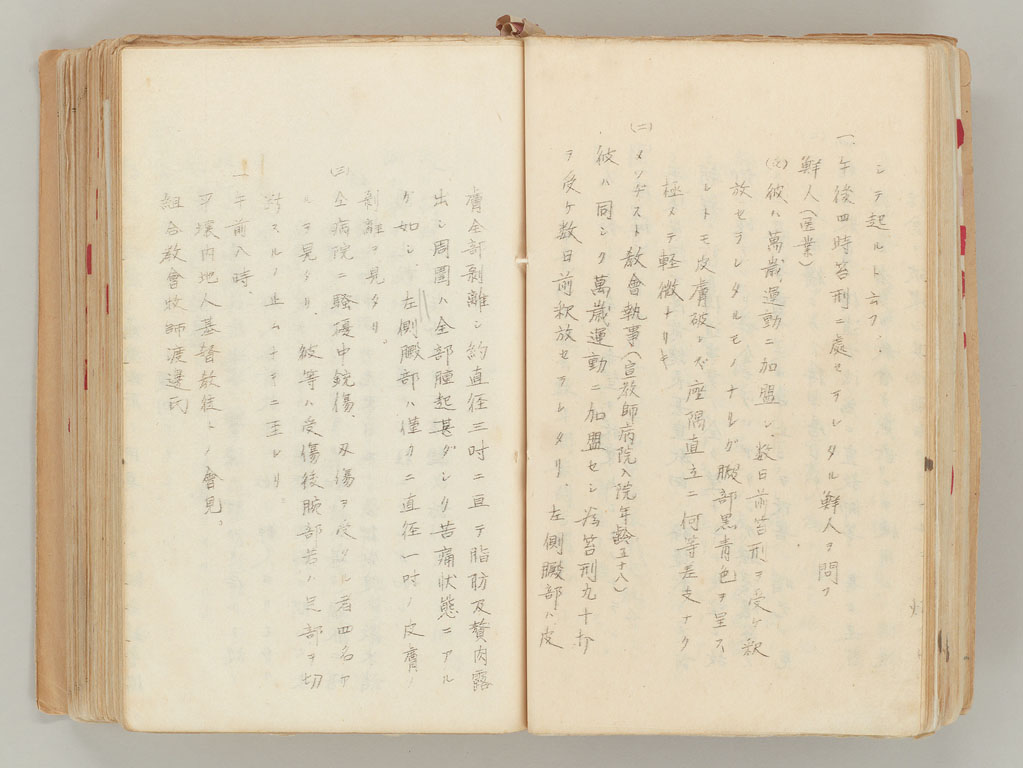 シテ起ルト云フ.
一、午後四時笞刑ニ處セラレタル鮮人ヲ問フ
鮮人(医業)
彼ハ萬歳運動ニ加盟シ、数日前笞刑ヲ受ケ釈
放セラレタルモノナルガ臋部黒青色ヲ呈ス
レトモ皮膚破レズ座隅直立ニ何等差支ナク
極メテ軽微ナリキ
(二)メソヂスト教會執事(宣教師病院入院年齢五十八)
彼ハ同シク萬歳運動ニ加盟セシ為笞刑九十打
ヲ受ケ数日前釈放セラレタリ、左側臋部ハ皮
膚全部剝離シ約直径三吋ニ亘テ脂肪及贅肉露
出シ周圍ハ全部腫起甚ダシク苦痛状態ニアル
ガ如シ、左側臋部ハ僅カニ直径一吋ノ皮膚ノ
剝離ヲ見タリ。
(三)仝病院ニ騒擾中銃傷、刃傷ヲ受ケタル者四名ケ
ルヲ見タリ、彼等ハ受傷後腕部若ハ足部ヲ切
断スルノ止ムナキニ至レリ
一、午前八時、
平壌内地人基督教徒トノ會見、
組合教會牧師渡邊